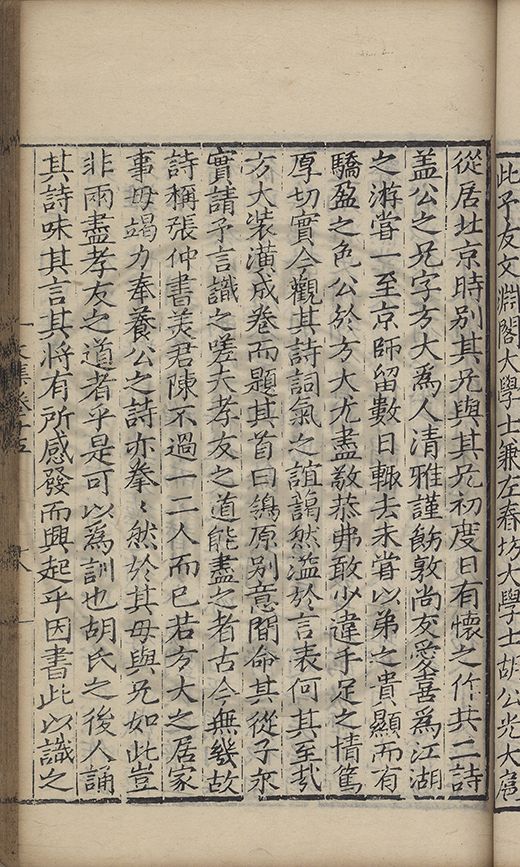 此予友文淵閣大學士兼左春坊大學士胡公光大扈
從居北京時別其兄與其兄初度日有懷之作共二詩
盖公之兄字方大為人清雅謹飭敦尚友愛喜為江湖
之游嘗一至京師留數日輙去未嘗以弟之貴顯而有
驕盈之色公於方大尤盡敬恭弗敢少違手足之情篤
厚切實今觀其詩詞氣之誼藹然溢於言表何其至㢤
方大装潢成卷而題其首曰鴒原别意間命其從子
實請予言識之嗟夫孝友之道能盡之者古今無幾故
詩稱張仲書羙君陳不過一二人而已若方大之居家
事母竭力奉養公之詩亦拳〻然於其母與兄如此豈
非兩盡孝友之道者乎是可以為訓也胡氏之後人誦
其詩味其言其將有所感發而興起乎因書此以識之
文集卷十五